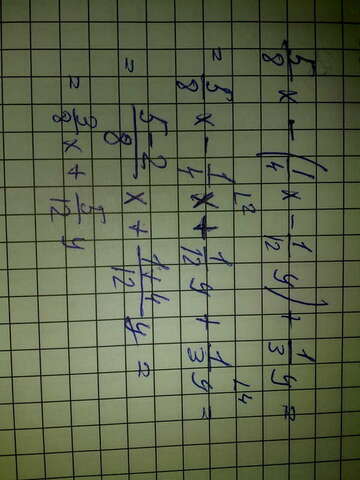 5/8 x - (1/4 x - 1/12 y) + 1/3 y =
= 5/8 x - 1/4 x + 1/12 y + 1/3 y =
= 5-2/8 x + 1+4/12 y =
= 3/8 x + 5/12 y